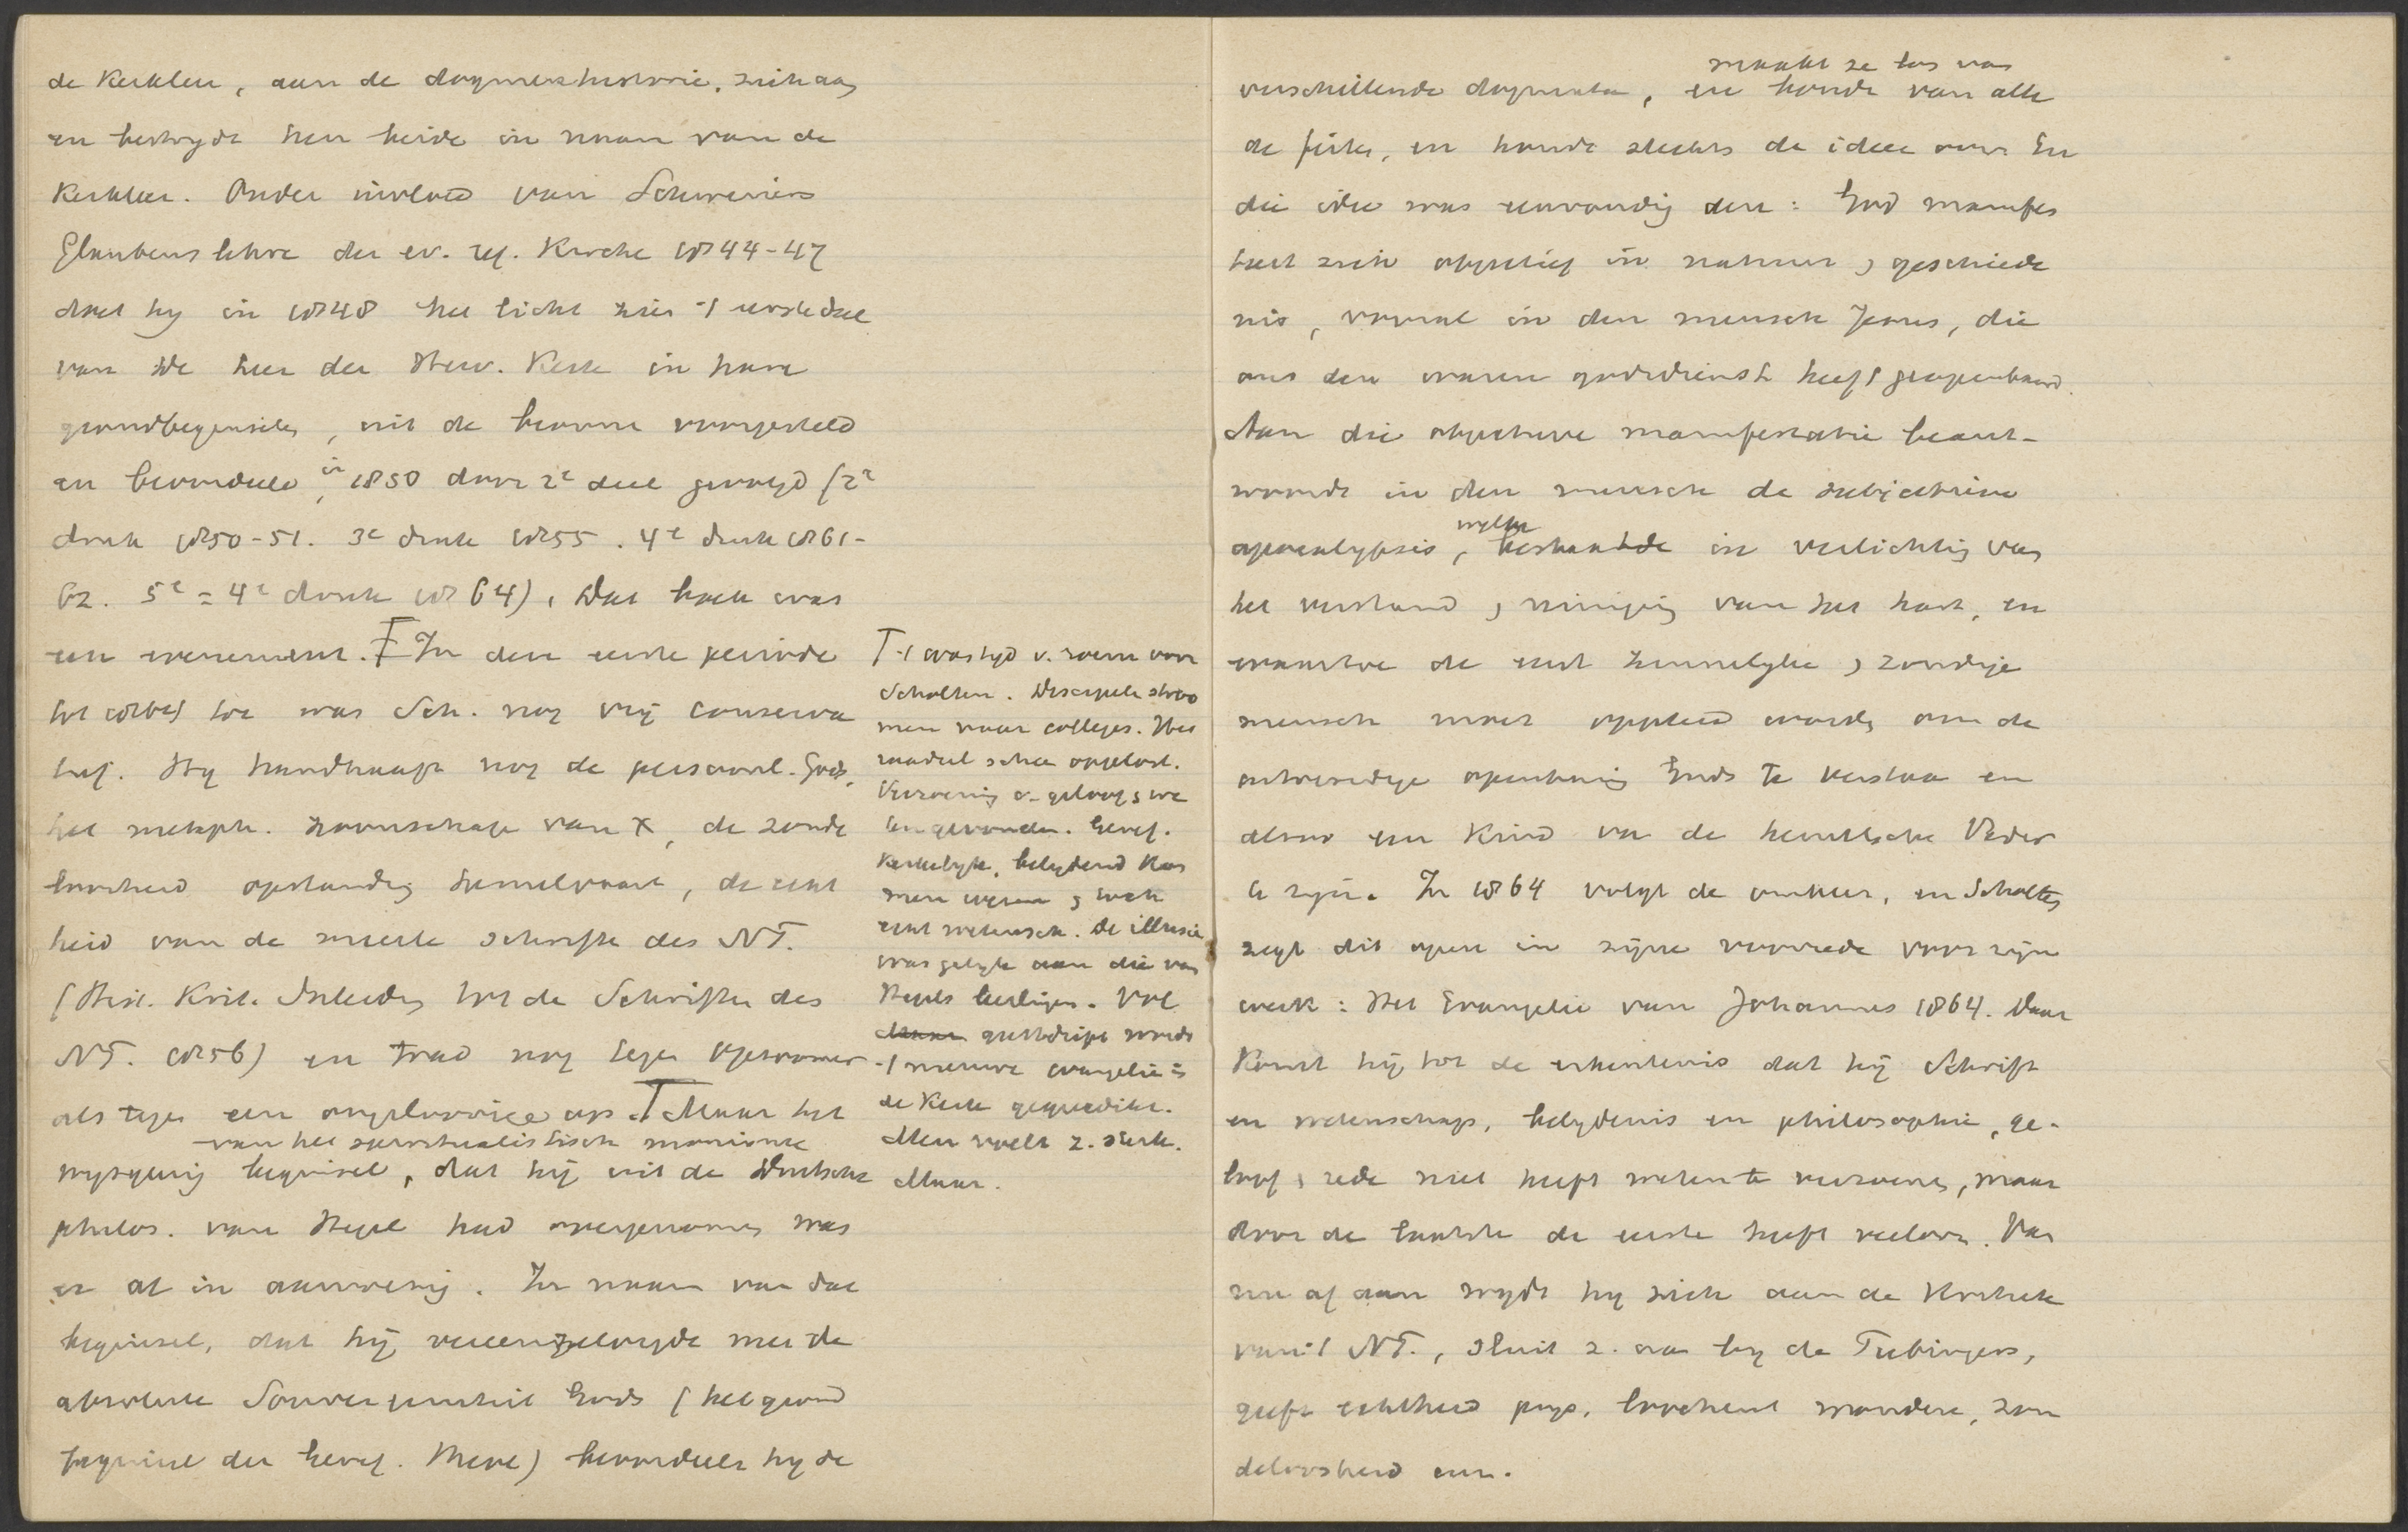 de Kerkleer, aan de dogmenhistorie, zich aan
en bestrydt hen beide in naam van de
Kerkleer. Onder invloed van Schweizers
Glaubenslehre der ev. ref. Kirche 1844-47
doet hy in 1848 het licht zien 't eerste deel
van De leer der Herv. Kerk in hare
grondbeginselen, uit de bronnen voorgesteld
en beoordeeld, in 1850 door 2e deel gevolgd (2e
druk 1850-51. 3e druk 1855. 4e druk 1861-
62. 5e = 4e druk 1864). Dat boek was
een evenement. Ŧ In den eerste periode
tot 1864) toe was Sch. nog vrij conserva
tief. Hy handhaaft nog de persoonl. Gods,
het metaph. zoonschap van X, de zonde
loosheid opstanding hemelvaart, de echt
heid van de meeste schriften des NT.
(Hist. Krit. Inleiding tot de Schriften des
NT. 1856) en trad nog tegen Opzoomer
als tegen een ongeloovige op. T Maar het
van het spiritualistisch monisme
wysgeerig beginsel, dat hij uit de Duitsche
philos. van Hegel had overgenomen was
er al in aanwezig. In naam van dat
beginsel, dat hij vereenzelvigde met de
absolute Souvereiniteit Gods (het grond
beginsel der Geref. Kerk) beoordeelt hy de
T 't was tyd v. roem voor
Scholten. Discipelen stroo
men naar colleges. Het
raadsel scheen opgelost.
Verzoening v. geloof & we
ten gevonden. Geref.
Kerkelyk, belydend kon
men wezen & toch
echt wetensch. De illusie
was gelyk aan die van
Hegels leerlingen. Vol
geestdrift werd
't nieuwe evangelie in
de Kerk gepredikt.
Men voelt z. sterk.
Maar.
maakt ze los van
verschillende dogmata, en houdt van alle
de feiten, en houdt slechts de idee over. En
die idee was eenvoudig deze: God manifes
teert zich objectief in natuur & geschiede
nis, vooral in den mensch Jezus, die
ons den waren godsdienst heeft geopenbaard.
Aan die objectieve manifestatie beant-
woordt in den mensch de subjectieve
apocalypsis, welke bestaat in verlichting van
het verstand & reiniging van het hart, en
waardoor de eerst zinnelyke & zondige
mensch moet opgeleid worden om de
ontwendige openbaring Gods te verstaan en
alzoo een Kind van de hemelsche Vader
te zijn. In 1864 volgt de omkeer, en Scholten
zegt dit open in zijne voorrede voor zijn
werk: Het Evangelie van Johannes 1864. Daar
komt hij tot de erkentenis dat hij Schrift
en wetenschap, belydenis en philosophie, ge-
loof & rede niet heeft weten te verzoenen, maar
door de laatste de eerste heeft verloren. Van
nu af aan wydt hy zich aan de Kritiek
van 't NT., sluit z. aan by de Tubingers,
geeft echtheid prys, loochent wonderen, zon
deloosheid enz.